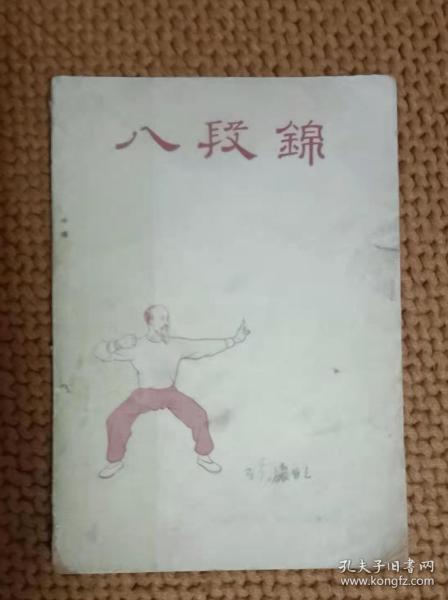 八段錦
孔夫子旧书网
www.kongfz.com